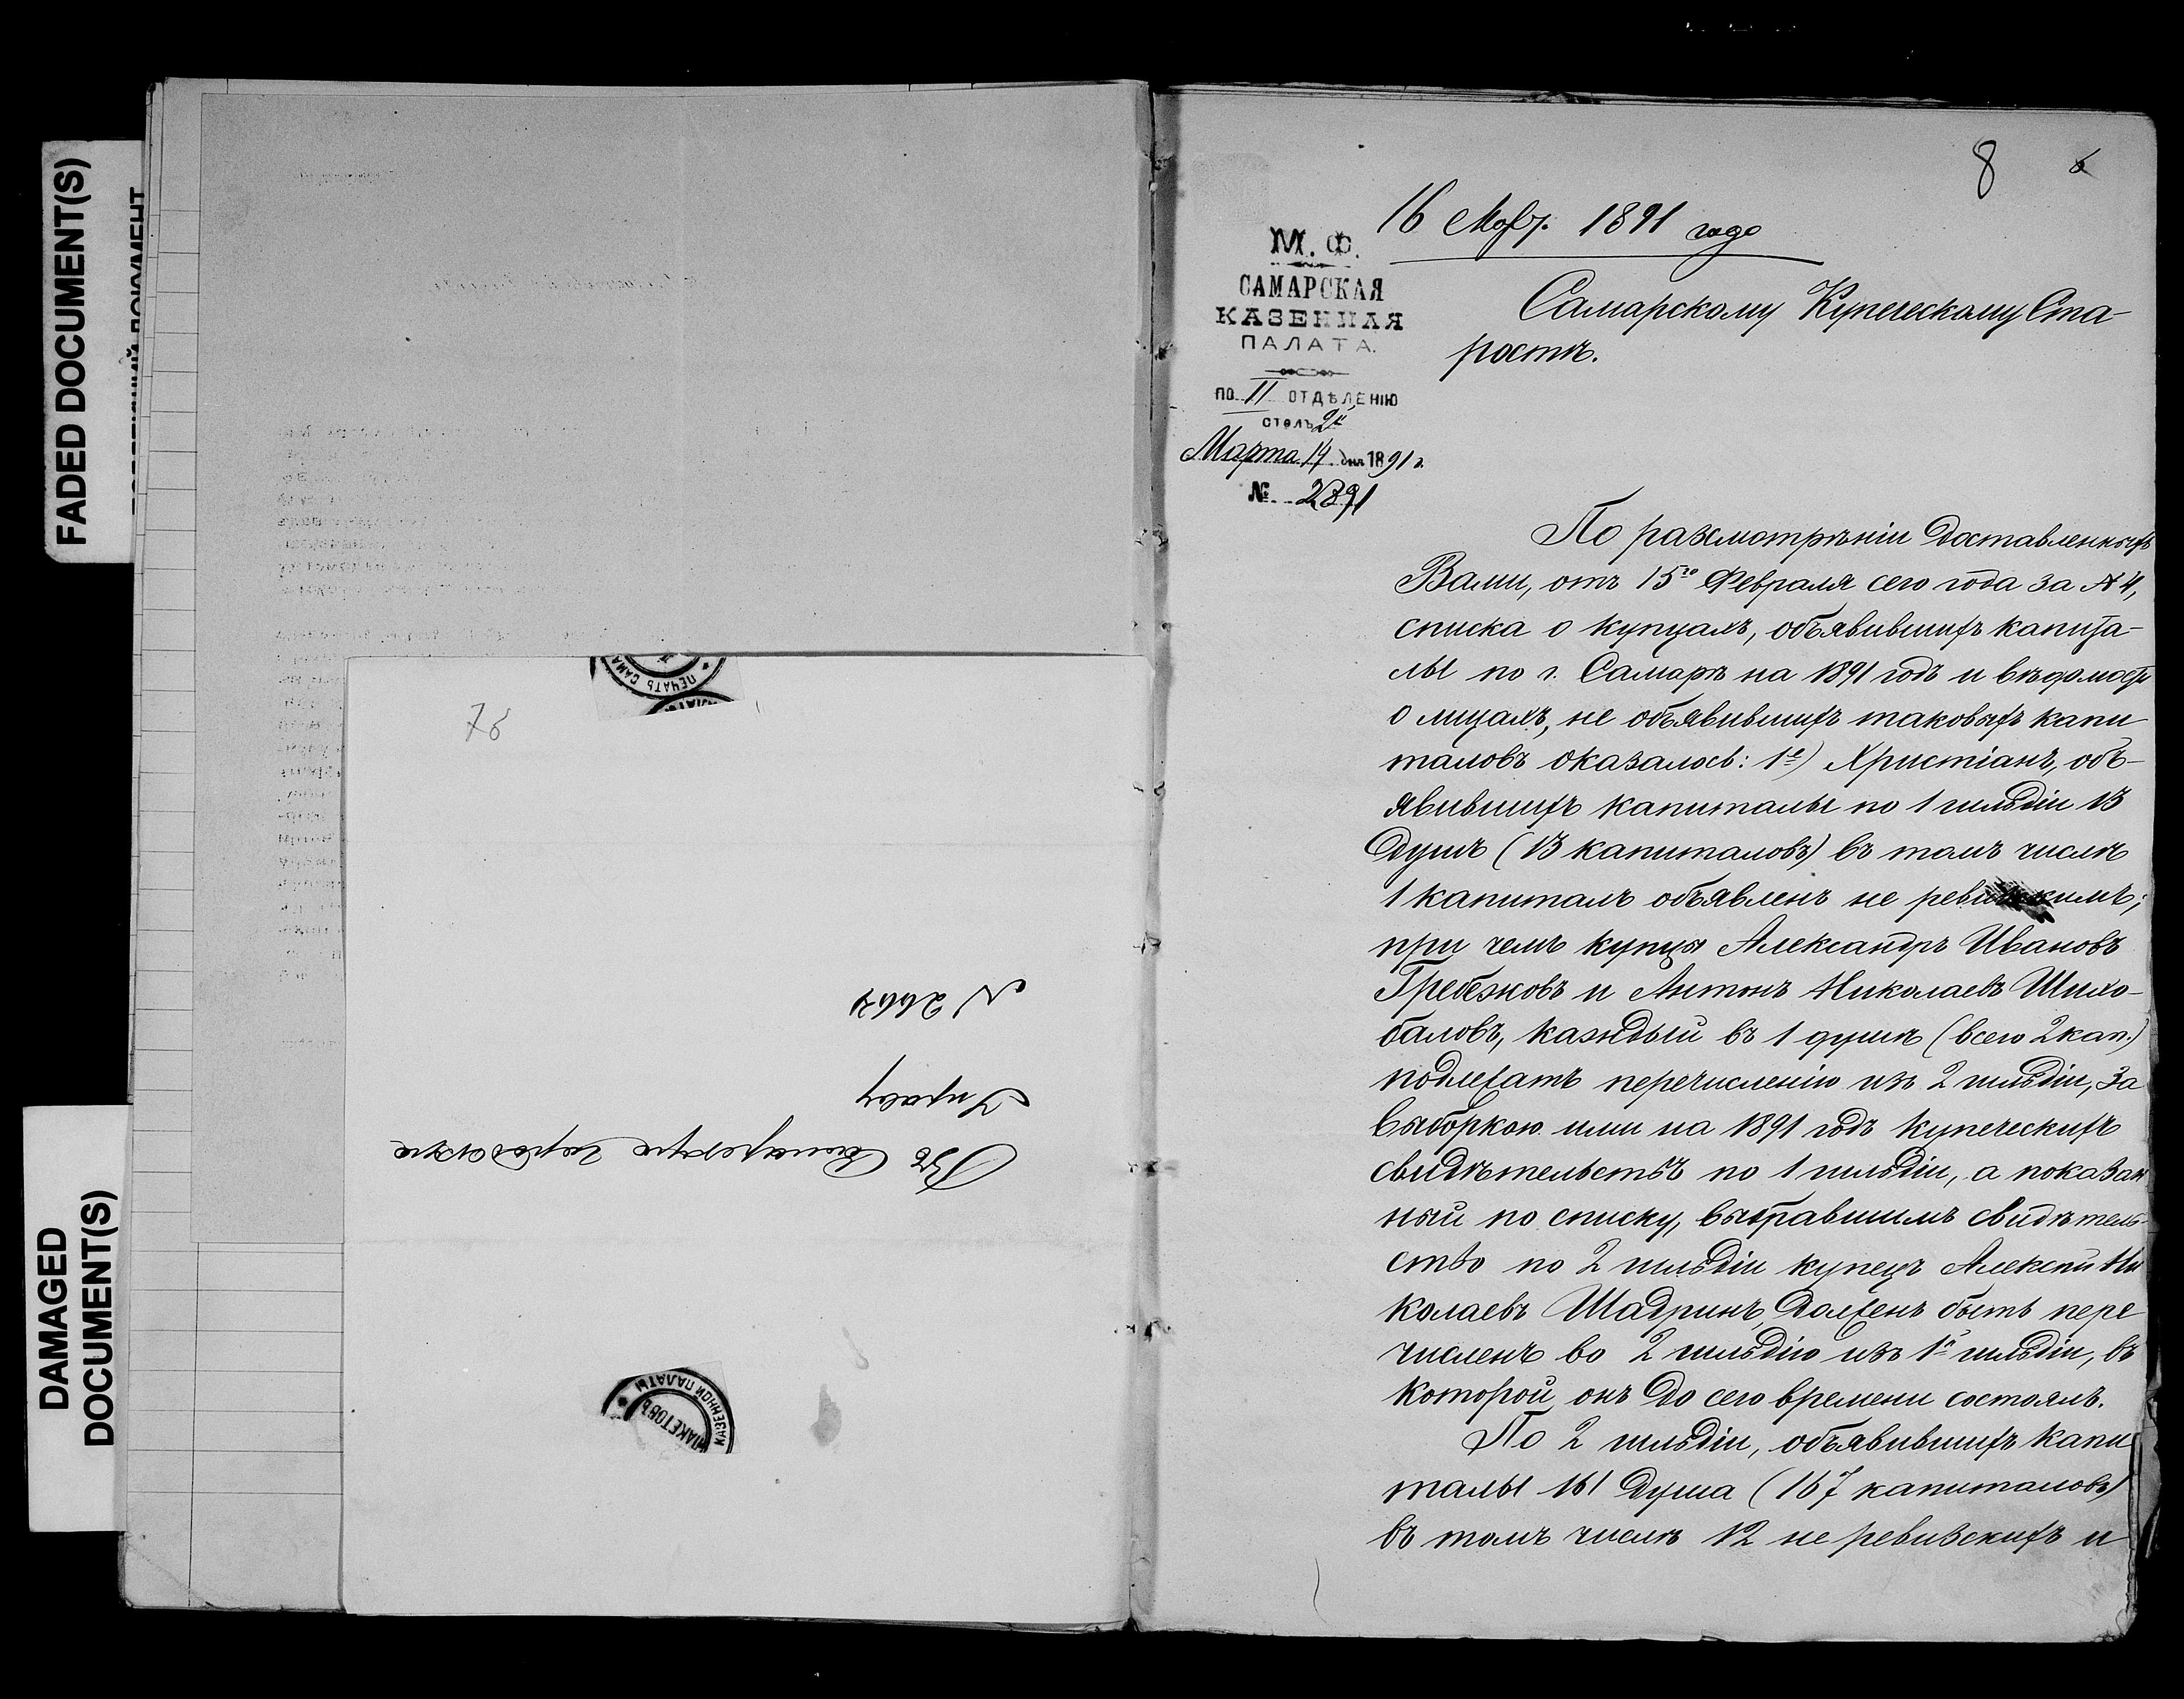 FADED DOCUMENT(S)
DAMAGED
DOCUMENT(S)
ПЕЧАТЬ САМА
7б
№ 2664
Управу
Въ Самарскую городскую
КАЗЕННОЙ ПАЛАТЫ
ПАКЕТОВЪ
8
16 Мар. 1891 года
М. Ф.
САМАРСКАЯ
КАЗЕННАЯ
ПАЛАТА.
ПО II ОТДѢЛЕНІЮ
СТОЛЪ 2й
Марта 14 дня 1891 г.
№ 2891
Самарскому Купеческому Ста-
ростѣ.
По разсмотрѣніи доставленныхъ
Вами, отъ 15го Февраля сего года за № 4,
списка о купцахъ, объявившихъ капита-
лы по г. Самарѣ на 1891 годъ и вѣдомости
о лицахъ, не объявившихъ таковыхъ капи
таловъ оказалось: 1е) Христіанъ, объ-
явившихъ капиталы по 1 гильдіи 13
душъ (13 капиталовъ) въ томъ числѣ
1 капиталъ объявленъ не ревизскимъ;
при чемъ купцы Александръ Ивановъ
Гребежковъ и Антонъ Николаевъ Шихо-
баловъ, каждый въ 1 душѣ (всего 2 кап.)
подлежатъ перечисленію изъ 2 гильдіи, за
выборкою ими на 1891 годъ купеческихъ
свидѣтельствъ по 1 гильдіи, а показан
ный по списку, выбравшимъ свидѣтель-
ство по 2 гильдіи купецъ Алексѣй Ни
колаевъ Шадринъ, долженъ быть пере
численъ во 2 гильдію изъ 1й гильдіи, въ
которой онъ до сего времени состоялъ.
По 2 гильдіи, объявившихъ капи
талы 161 душа (167 капиталовъ)
въ томъ числѣ 12 не ревизскихъ и